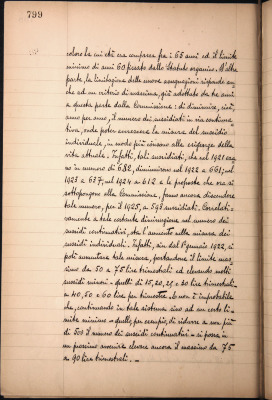 799
coloro la cui età era compresa fra i 65 anni ed il limite
minimo di anni 60 fissato dallo Statuto organico. D'altra
parte, la limitazione delle nuove assegnazioni risponde an-
che ad un criterio di massima, già adottato da tre anni
a questa parte dalla Commissione: di diminuire, cioè,
anno per anno, il numero dei sussidiati in via continua-
tiva, onde poter accrescere la misura del sussidio
individuale, in modo più consono alle esigenze della
vita attuale. Infatti, tali sussidiati, che nel 1921 era-
no in numero di 682, diminuirono nel 1922 a 661; nel
1923 a 637; nel 1924 a 612 e le proposte che ora si
sottopongono alla Commissione, fanno ancora discendere
tale numero, per il 1925, a 593 sussidiati. Correlati-
vamente a tale costante diminuzione nel numero dei
sussidi continuativi, sta l'aumento nella misura dei
sussidi individuali. Infatti, sin dal 1º gennaio 1922, si
poté aumentare tale misura, portandone il limite mas-
simo da 50 a 75 lire trimestrali ed elevando molti
sussidi minori - quelli di 15, 20, 25 e 30 lire trimestrali -
a 40, 50 e 60 lire per trimestre. E non è improbabile
che, continuando in tale sistema sino ad un certo li-
mite minimo - quello, per esempio, di ridurre a non più
di 500 il numero di sussidi continuativi - si possa in
un prossimo avvenire elevare ancora il massimo da 75
a 90 lire trimestrali. -